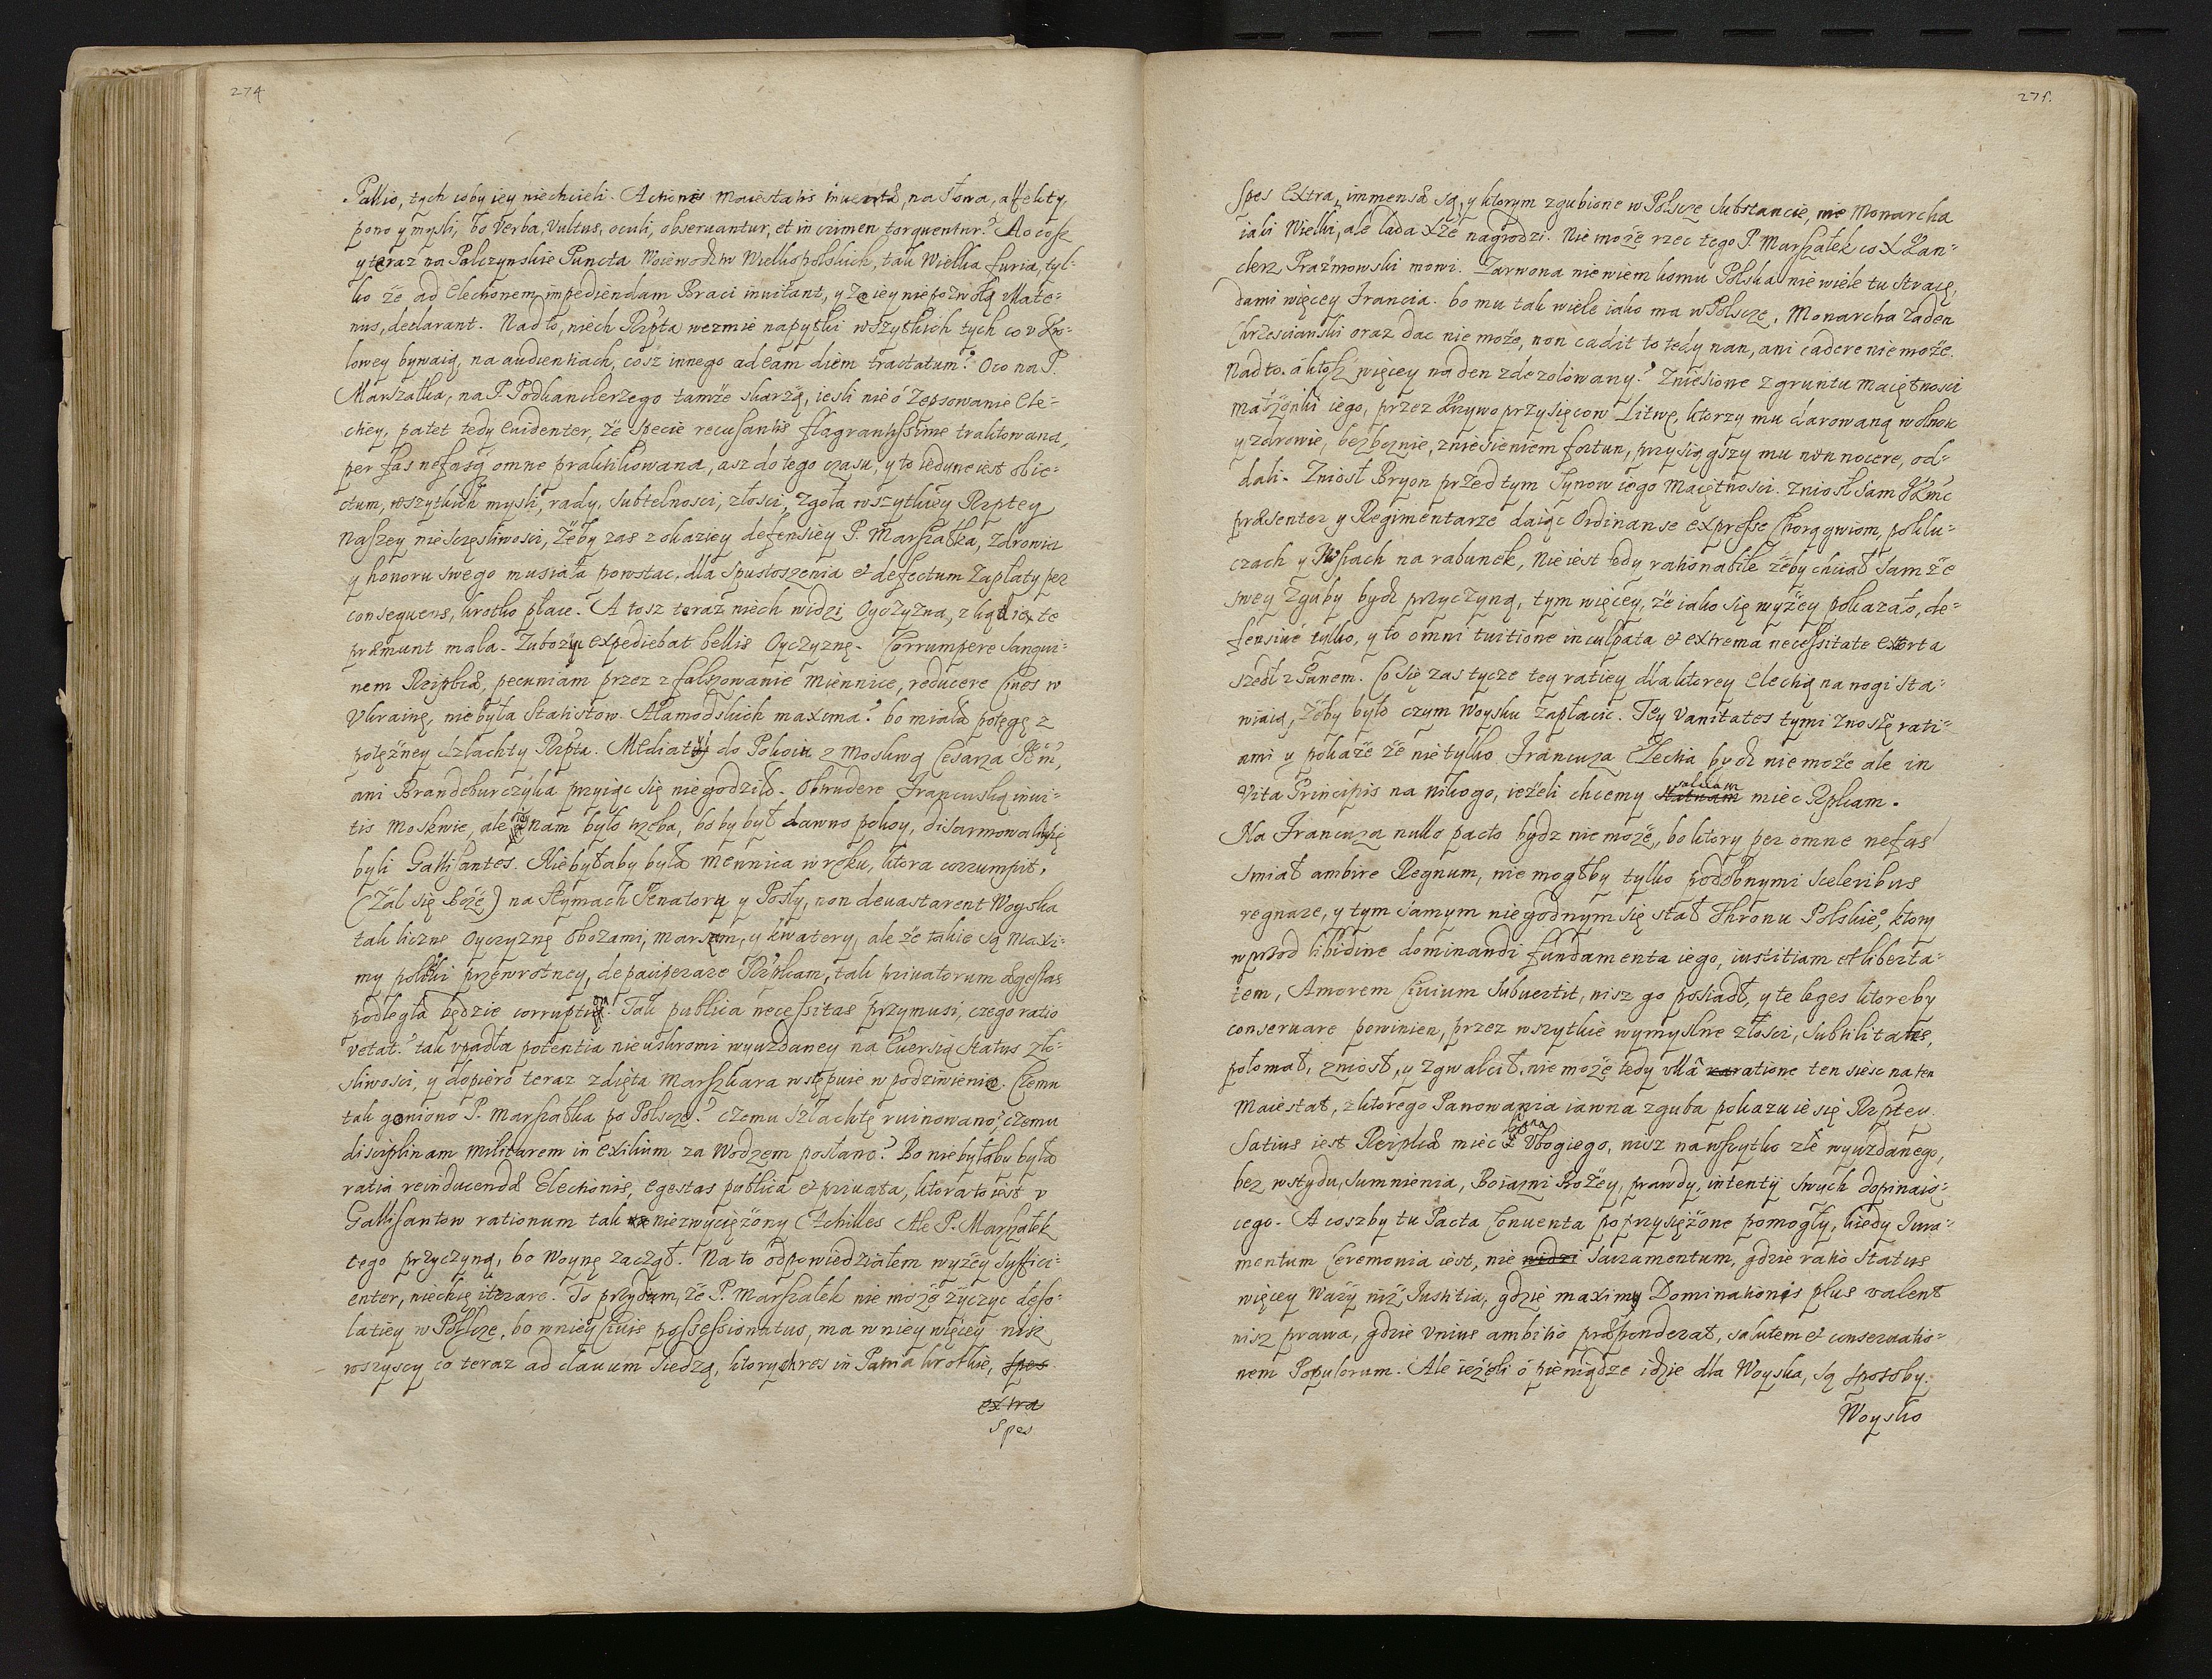 274
Pallio, tych coby iey niechcieli. Actiones Maiestatis inuentæ, na słowa, affekty,
pono y mysli, bo Verba, Vultus, oculi, obseruantur, et in crimen torquentur? Ao cosz
y teraz na Palczynskie Puncta Woiewodztw Wielkopolskich, tak Wielka furia, tyl=
ko że ad Electionem impediendam Braci inuitant, y że iey niepozwolą vllate=
nus, declarant. Nad to, niech Rzpta wezmie napytki wszytkich tych co v Kro=
lowey bywaią, na audientiach, cosz innego ad eam diem tractatum? Oco na P.
Marszałka, na P. Podkanclerzego tamże skarżą, iesli nie o zepsowanie Ele=
ctiey, patet tedy Euidenter, że specie recusantis flagrantissime traktowana,
per fas nefasq̃ omne praktikowana, asz do tego czasu, y to iedyne iest obie=
ctum, wszytkich mysli, rady, subtelnosci, złosci, zgoła wszytkiey Rzptey
Naszey niesczęsliwosci, Żeby zas z okaziey defensiey P. Marszałka, zdrowia
y honoru swego musiała powstac, dla spustoszenia et defectum Zapłaty per
consequens, krotko płace. A tosz teraz niech widzi Oyczyzna, z kąd ie te
præmunt mala. Zubożyc expediebat bellis Oyczyznę. Corrumpere sangui=
nem Reipblæ, pecuniam przez zfalszowanie Miennice, reducere Ciues w
Vkrainę, niebyła Statistow Alamodskich maxima? bo miała potęgę z
potężney szlachty Rzpta. Mediatii do Pokoiu z Moskwą Cesarza JEm̃,
ani Brandeburczyka przyiąc się niegodziło. Obtrudere Francuską inui=
tis Moskwie, ale y nam było trzeba, bo by był dawno pokoy, disarmowali się
byli Gallisantes. Niebyłaby była Mennica w ręku, ktora corrumpit,
(Żal się Boże) na Seymach Senatory y Posły, non deuastarent Woyska
tak liczne Oyczyznę Obozami, marszem, y kwatery, ale że takie są Maxi=
my politiki przewrotney, depauperare Rzplicam, tak priuatorum ægestas
podległa będzie corruptią? Tak publica necessitas przymusi, czego ratio
vetat? tak vpadła potentia nieuskromi wyuzdaney na Euersią Status zło=
sliwosci, y dopiero teraz zdięta Marszkara wstępuie w podziwienie. Czemu
tak goniono P. Marszałka po Polscze? czemu Szlachtę ruinowano, czemu
disciplinam Militarem in exilium za Wodzem posłano? Bo niebyłaby była
ratia reinducendæ Electionis, egestas publica et priuata, ktora to iest v
Gallisantow rationum tak niezwyciężony Achilles Ale P. Marszałek
tego przyczyną, bo Woynę zaczął. Na to odpowiedziałem wyżey suffici=
enter, niechcę iterare. To przydam, że P. Marszałek nie może życzyc deso=
latiey w Polscze, bo w niey Ciuis possessionatus, ma w niey więcey nisz
wszyscy co teraz ad clauum siedzą, ktorych res in Patria krotkie, spes
extra
Spes
275.
Spes extra, immensæ są, y ktorym zgubione w Polscze substancie, nie Monarcha
iaki Wielki, ale lada Xże nagrodzi. Nie może rzec tego P. Marszałek co X Kan=
clerz Prażmowski mowi. Zarwona niewiem komu Polska niewiele tu stracę,
dami więcey Francia. bo mu tak wiele iako ma w Polscze, Monarcha żaden
Chrzescianski oraz dac nie może, non cadit to tedy nan, ani cadere nie może.
Nad to. a ktosz więcey naden zdezolowany? Zniesione z gruntu Maiętnosci
Małżonki iego, przez Krzywoprzysięcow Litwę, ktorzy mu darowaną wolnosc
y zdrowie, bezbożnie, zniesieniem fortun, przysiągszy mu non nocere, od=
dali. Zniosł Bryon przedtym Synow iego Maiętnosci. Zniosł sam JKmc
præsenter y Regimentarze daiąc Ordinanse expresse Chorągwiom, po klu=
czach y Wsiach na rabunek, Nie iest tedy rationabile żeby chciał sam że
swey zguby bydz przyczyną, tym więcey, że iako się wyżey pokazało, de=
fensiuè tylko, y to omni tuitione inculpata et extrema necessitate extorta
szedł z Panem. Co się zas tycze tey ratiey dla ktorey Electią na nogi sta=
wiaią, żeby było czym Woysku zapłacic. Tey Vanitates tymi znoszę rati=
ami y pokaże że nietylko Francuza Electia bydz nie może ale in
Vita Principis na nikogo, ieżeli chcemy saluam statuam miec Rplicam.
Na Francuza nullo pacto bydz nie może, bo ktory per omne nefas
smiał ambire Regnum, nie mogłby tylko podobnymi sceleribus
regnare, y tym samym niegodnym się stał Thronu Polskieo, ktory
wprzod libidine dominandi fundamenta iego, iustitiam et liberta=
tem, Amorem Ciuium subuertit, nisz go posiadł, y te leges ktoreby
conseruare powinien, przez wszytkie wymyslne złosci, subtilitates,
połomał, zniosł, y zgwałcił, nie może tedy vllâ ratione ten siesc na ten
Maiestat, z ktorego Panowania iawna zguba pokazuie się Rzptey.
Satius iest Reipblæ miec Pana Vbogiego, nisz na wszytko złe wyuzdanego,
bez wstydu, sumnienia, Boiazni Bożey, prawdy, intenty swych dopinaią=
cego. A coszby tu Pacta Conuenta poprzysiężone pomogły, kiedy Iura=
mentum Ceremonia iest, nie widzi Sacramentum, gdzie ratio Status
więcey waży niż Iustitia, gdzie maximy Dominationis plus valent
nisz prawa, gdzie vnius ambitio præponderat, salutem et conseruatio=
nem Populorum. Ale ieżeli o pieniądze idzie dla Woyska, są sposoby.
Woysko